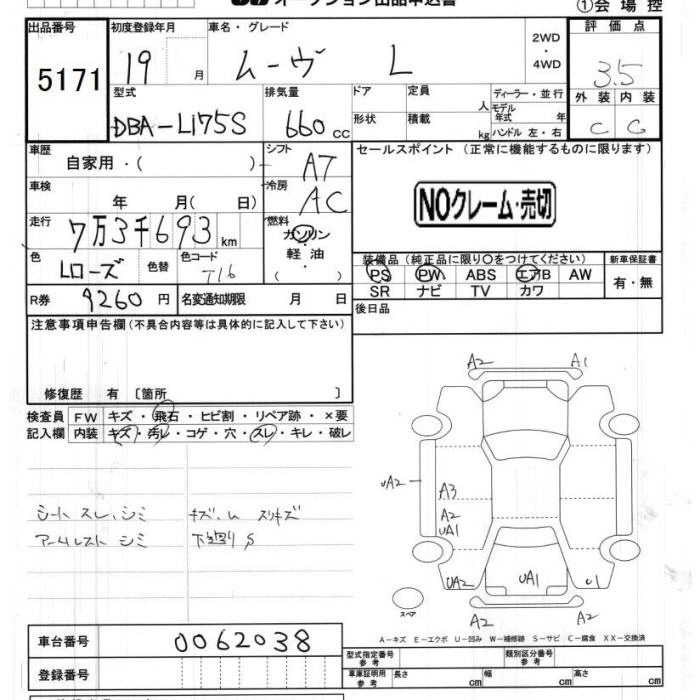 オークション出品申込書
①会場控
出品番号 初度登録年月 車名・グレード 評価点
5171 19 月 ムーヴ L 2WD・4WD 3.5
型式 排気量 ドア 定員 人 ディーラー・並行 外装 内装
DBA-L175S 660 cc 形状 積載 kg モデル年式 年 ハンドル 左・右 C C
車歴 シフト セールスポイント(正常に機能するものに限ります)
自家用・( ) AT
車検 冷房 NOクレーム・売切
年 月( 日) AC
走行 燃料
7万3千693km ガソリン・軽油・( )
色 色替 色コード 装備品(純正品に限り○をつけてください) 新車保証書
Lローズ T16 PS PW ABS エアB AW 有・無
SR ナビ TV カワ
R券 9260円 名変通知期限 月 日 後日品
注意事項申告欄(不具合内容等は具体的に記入して下さい)
修復歴 有 〔箇所 〕
検査員 FW キズ・飛石・ヒビ割・リペア跡・×要
記入欄 内装 キズ・汚レ・コゲ・穴・スレ・キレ・破レ
シート スレ、シミ キズ、ム スリキズ
アームレスト シミ 下廻り S
A2 A1
UA2
A3
A2
UA1
UA2 UA1 U1
スペア A2 A2
A-キズ E-エクボ U-凹み W-補修跡 S-サビ C-腐食 XX-交換済
車台番号 0062038 型式指定番号 参考 類別区分番号 参考
登録番号 車庫証明用 参考 長さ cm 幅 cm 高さ cm